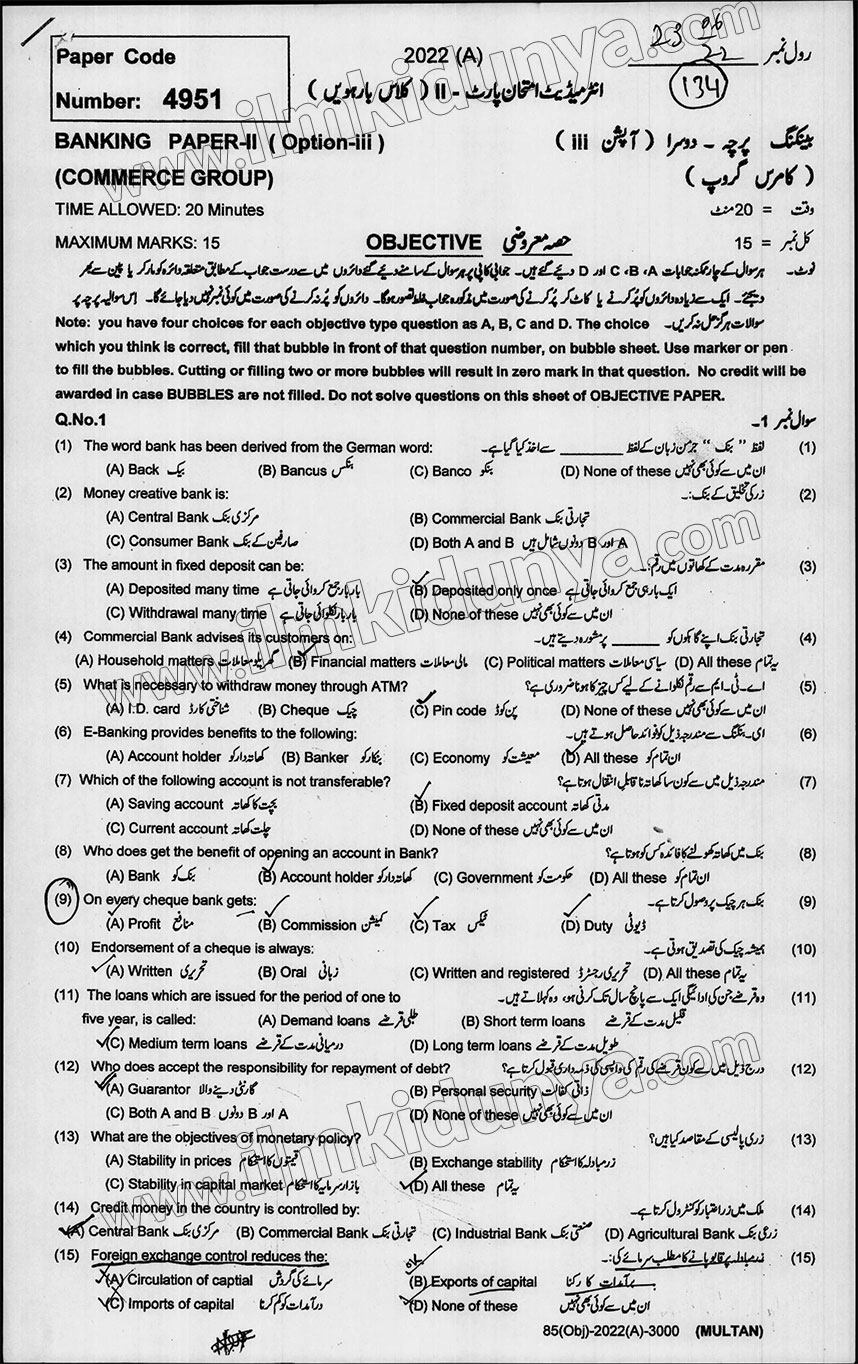 Paper Code
Number: 4951
2022 (A)
رول نمبر
134
انٹرمیڈیٹ امتحان پارٹ - II ( کلاس بارہویں )
BANKING PAPER-II ( Option-iii )
بینکنگ پرچہ - دوسرا ( آپشن iii )
(COMMERCE GROUP)
( کامرس گروپ )
TIME ALLOWED: 20 Minutes
وقت = 20 منٹ
MAXIMUM MARKS: 15
OBJECTIVE حصہ معروضی
کل نمبر = 15
نوٹ- ہر سوال کے چار ممکنہ جوابات A ، B ، C اور D دیے گئے ہیں۔ جوابی کاپی پر ہر سوال کے سامنے دیے گئے دائروں میں سے درست جواب کے مطابق متعلقہ دائرہ کو مارکر یا پین سے بھر
دیجئے۔ ایک سے زیادہ دائروں کو پُر کرنے یا کاٹ کر پُر کرنے کی صورت میں مذکورہ جواب غلط تصور ہوگا۔ دائروں کو پُر نہ کرنے کی صورت میں کوئی نمبر نہیں دیا جائے گا۔ اس سوالیہ پرچہ پر
سوالات ہرگز حل نہ کریں۔
Note: you have four choices for each objective type question as A, B, C and D. The choice
which you think is correct, fill that bubble in front of that question number, on bubble sheet. Use marker or pen
to fill the bubbles. Cutting or filling two or more bubbles will result in zero mark in that question. No credit will be
awarded in case BUBBLES are not filled. Do not solve questions on this sheet of OBJECTIVE PAPER.
Q.No.1 سوال نمبر 1-
(1) The word bank has been derived from the German word: لفظ " بنک " جرمن زبان کے لفظ ________ سے اخذ کیا گیا ہے۔ (1)
(A) Back بیک (B) Bancus بنکس (C) Banco بنکو (D) None of these ان میں سے کوئی بھی نہیں
(2) Money creative bank is: زر کی تخلیق کے بنک:۔ (2)
(A) Central Bank مرکزی بنک (B) Commercial Bank تجارتی بنک
(C) Consumer Bank صارفین کے بنک (D) Both A and B A اور B دونوں شامل ہیں
(3) The amount in fixed deposit can be: مقررہ مدت کے کھاتوں میں رقم؟۔ (3)
(A) Deposited many time بار بار جمع کروائی جاتی ہے (B) Deposited only once ایک بار ہی جمع کروائی جاتی ہے
(C) Withdrawal many time بار بار نکلوائی جاتی ہے (D) None of these ان میں سے کوئی بھی نہیں
(4) Commercial Bank advises its customers on: تجارتی بنک اپنے گاہکوں کو ______ پر مشورہ دیتے ہیں۔ (4)
(A) Household matters گھریلو معاملات (B) Financial matters مالی معاملات (C) Political matters سیاسی معاملات (D) All these یہ تمام
(5) What is necessary to withdraw money through ATM? اے-ٹی-ایم سے رقم نکلوانے کے لیے کس چیز کا ہونا ضروری ہے؟ (5)
(A) I.D. card شناختی کارڈ (B) Cheque چیک (C) Pin code پن کوڈ (D) None of these ان میں سے کوئی بھی نہیں
(6) E-Banking provides benefits to the following: ای-بنکنگ سے مندرجہ ذیل کو فوائد حاصل ہوتے ہیں۔ (6)
(A) Account holder کھاتہ دار کو (B) Banker بنکار کو (C) Economy معیشت کو (D) All these ان تمام کو
(7) Which of the following account is not transferable? مندرجہ ذیل میں سے کون سا کھاتہ نا قابلِ انتقال ہوتا ہے؟ (7)
(A) Saving account بچت کا کھاتہ (B) Fixed deposit account مدتی کھاتہ
(C) Current account چلت کھاتہ (D) None of these ان میں سے کوئی بھی نہیں
(8) Who does get the benefit of opening an account in Bank? بنک میں کھاتہ کھولنے کا فائدہ کس کو ہوتا ہے؟ (8)
(A) Bank بنک کو (B) Account holder کھاتہ دار کو (C) Government حکومت کو (D) All these ان تمام کو
(9) On every cheque bank gets: بنک ہر چیک پر وصول کرتا ہے۔ (9)
(A) Profit منافع (B) Commission کمیشن (C) Tax ٹیکس (D) Duty ڈیوٹی
(10) Endorsement of a cheque is always: ہمیشہ چیک کی تصدیق ہوتی ہے۔ (10)
(A) Written تحریری (B) Oral زبانی (C) Written and registered تحریری رجسٹرڈ (D) All these یہ تمام
(11) The loans which are issued for the period of one to وہ قرضے جن کی ادائیگی ایک سے پانچ سال تک کرنی ہو، وہ کہلاتے ہیں۔ (11)
five year, is called: (A) Demand loans طلبی قرضے (B) Short term loans قلیل مدت کے قرضے
(C) Medium term loans درمیانی مدت کے قرضے (D) Long term loans طویل مدت کے قرضے
(12) Who does accept the responsibility for repayment of debt? درج ذیل میں سے کون قرضے کی رقم کی واپسی کی ذمہ داری قبول کرتا ہے؟ (12)
(A) Guarantor گارنٹی دینے والا (B) Personal security ذاتی کفالت
(C) Both A and B A اور B دونوں (D) None of these ان میں سے کوئی بھی نہیں
(13) What are the objectives of monetary policy? زری پالیسی کے مقاصد کیا ہیں؟ (13)
(A) Stability in prices قیمتوں کا استحکام (B) Exchange stability زر مبادلہ کا استحکام
(C) Stability in capital market بازار سرمایہ کا استحکام (D) All these یہ تمام
(14) Credit money in the country is controlled by: ملک میں زرِ اعتبار کو کنٹرول کرتا ہے۔ (14)
(A) Central Bank مرکزی بنک (B) Commercial Bank تجارتی بنک (C) Industrial Bank صنعتی بنک (D) Agricultural Bank زرعی بنک
(15) Foreign exchange control reduces the: زرمبادلہ پر قابو پانے کا مطلب سرمائے کی:۔ (15)
(A) Circulation of captial سرمائے کی گردش (B) Exports of capital برآمدات کا رکنا
(C) Imports of capital درآمدات کو کم کرنا (D) None of these ان میں سے کوئی بھی نہیں
85(Obj)-2022(A)-3000 (MULTAN)
www.ilmkidunya.com
www.ilmkidunya.com
www.ilmkidunya.com
www.ilmkidunya.com